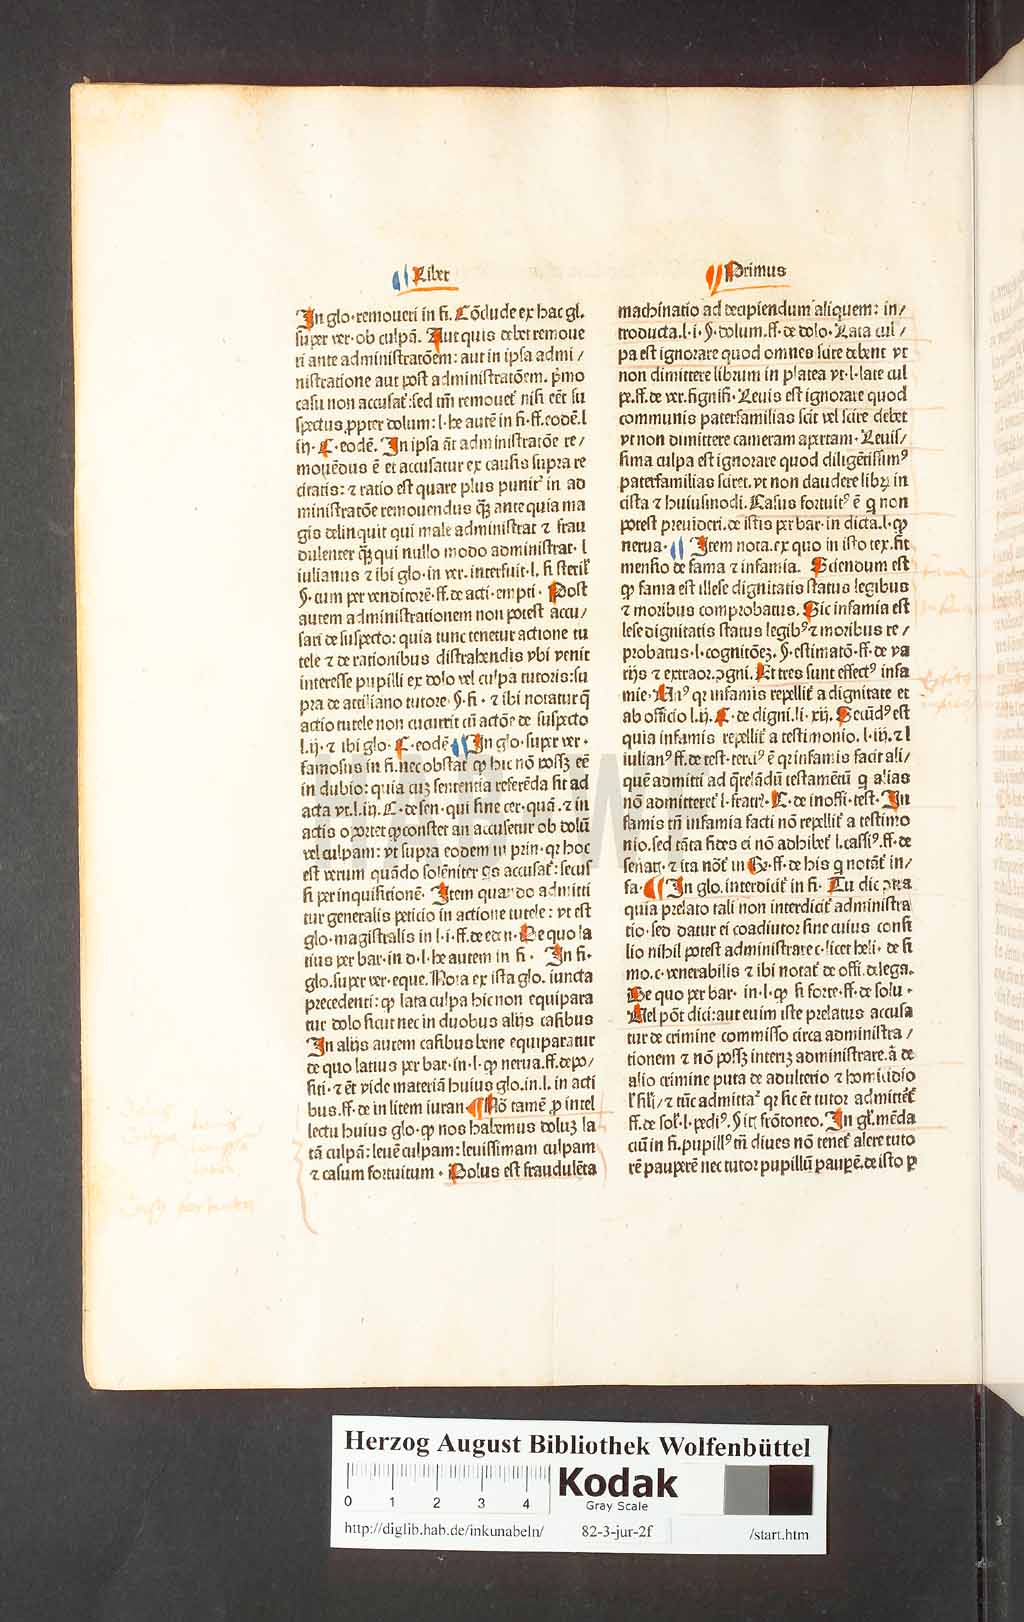 Liber
Primus
In glo. remoueri in fi. Cōclude ex hac gl.
super ver. ob culpā. Aut quis debet remoue
ri ante administratōem: aut in ipsa admi/
nistratione aut post administratōem. p̄mo
casu non accusat̄: sed tm̄ remouet̄ nisi eēt su
spectus ꝓpter dolum: l. he autē in fi. ff. eodē. l
iij. C. eodē. In ipsa āt administratōe re/
mouēdus ē et accusatur ex causis supra re
citatis: ⁊ ratio est quare plus punit᷑ in ad
ministratōe remouendus q̄ꝫ ante quia ma
gis delinquit qui male administrat ⁊ frau
dulenter q̄ꝫ qui nullo modo administrat. l
iulianus ⁊ ibi glo. in ver. interfuit. l. si steril᷑
§. cum per venditorē. ff. de acti. empti. Post
autem administrationem non potest accu/
sari de suspecto: quia tunc tenetur actione tu
tele ⁊ de rationibus distrahendis vbi venit
interesse pupilli ex dolo vel culpa tutoris: su
pra de attiliano tutore §. fi. ⁊ ibi notatur q̄
actio tutele non cucurrit cū actōe de suspecto
l. ij. ⁊ ibi glo. C. eodē In glo. super ver.
famosus in fi. nec obstat ꝙ hic nō possꝫ eē
in dubio: quia cuꝫ sententia referēda sit ad
acta vt. l. iij. C. de sen. qui sine cer. quā. ⁊ in
actis oportet ꝙ constet an accusetur ob dolū
vel culpam: vt supra eodem in prin. qꝛ hoc
est verum quādo solēniter qs accusat᷑: secus
si per inquisitionē. Item quando admitti
tur generalis peticio in actione tutele: vt est
glo. magistralis in l. i. ff. de eden. De quo la
tius per bar. in d. l. he autem in fi. In fi.
glo. super ver. eque. Nota ex ista glo. iuncta
precedenti: ꝙ lata culpa hic non equipara
tur dolo sicut nec in duobus alijs casibus
In alijs autem casibus bene equiparatur
de quo latius per bar. in. l. ꝙ nerua. ff. depo/
siti. ⁊ ēt vide materiā huius glo. in. l. in acti
bus. ff. de in litem iuran Nō tamē ꝓ intel
lectu huius glo. ꝙ nos habemus doluꝫ la
tā culpā: leuē culpam: leuissimam culpam
⁊ casum fortuitum. Dolus est fraudulēta
machinatio ad decipiendum aliquem: in/
troducta. l. i. §. dolum. ff. de dolo. Lata cul/
pa est ignorare quod omnes scire debent vt
non dimittere librum in platea vt. l. late cul
pe. ff. de ver. signifi. Leuis est ignorare quod
communis paterfamilias scit vel scire debet
vt non dimittere cameram apertam. Leuis/
sima culpa est ignorare quod diligētissimꝰ
paterfamilias sciret. vt non claudere libꝝ in
cista ⁊ huiusmodi. Casus fortuitꝰ ē q non
potest preuideri. de istis per bar. in dicta. l. ꝙ
nerua. Item nota. ex quo in isto tex. fit
mensio de fama ⁊ infamia. Sciendum est
ꝙ fama est illese dignitatis status legibus
⁊ moribus comprobatus. Sic infamia est
lese dignitatis status legibꝰ ⁊ moribus re/
probatus. l. cognitōeꝫ. §. estimatō. ff. de va
rijs ⁊ extraor. ꝯgni. Et tres sunt effectꝰ infa
mie. Anꝰ qꝛ infamis repellit᷑ a dignitate et
ab officio l. ij. C. de digni. li. xij. Secūdꝰ est
quia infamis repellit᷑ a testimonio. l. iij. ⁊ l
iulianꝰ ff. de test. terciꝰ ē qꝛ infamis facit ali/
quē admitti ad q̄relādū testamētū q alias
nō admitteret᷑ l. fratr᷑. C. de inoffi. test. In
famis tn̄ infamia facti nō repellit᷑ a testimo
nio. sed tāta fides ei nō adhibet᷑ l. cassiꝰ. ff. de
senat. ⁊ ita nōt᷑ in §. ff. de his q notāt᷑ in/
fa. In glo. interdicit᷑ in fi. Tu dic ꝯtra
quia prelato tali non interdicit᷑ administra
tio. sed datur ei coadiutor sine cuius consi
lio nihil potest administrare c. licet heli. de si
mo. c. venerabilis ⁊ ibi notat᷑ de offi. delega.
De quo per bar. in. l. ꝙ si forte. ff. de solu.
Uel pōt dici: aut enim iste prelatus accusa
tur de crimine commisso circa administra/
tionem ⁊ nō possꝫ interiꝫ administrare. a͛ de
alio crimine puta de adulterio ⁊ homicidio
l᷑ sili/ ⁊ tūc admittat᷑ qꝛ sic ēt tutor admittēt᷑
ff. de sol᷑. l. pediꝰ. § ir. frōtoneo. In gl᷑. mēda
ciū in fi. pupillꝰ tn̄ diues nō tenet᷑ alere tuto
rē pauperē nec tutor pupillū pauperē. de isto ꝑ
HAB-WF
Herzog August Bibliothek Wolfenbüttel
0 1 2 3 4
Kodak
Gray Scale
http://diglib.hab.de/inkunabeln/ 82-3-jur-2f /start.htm